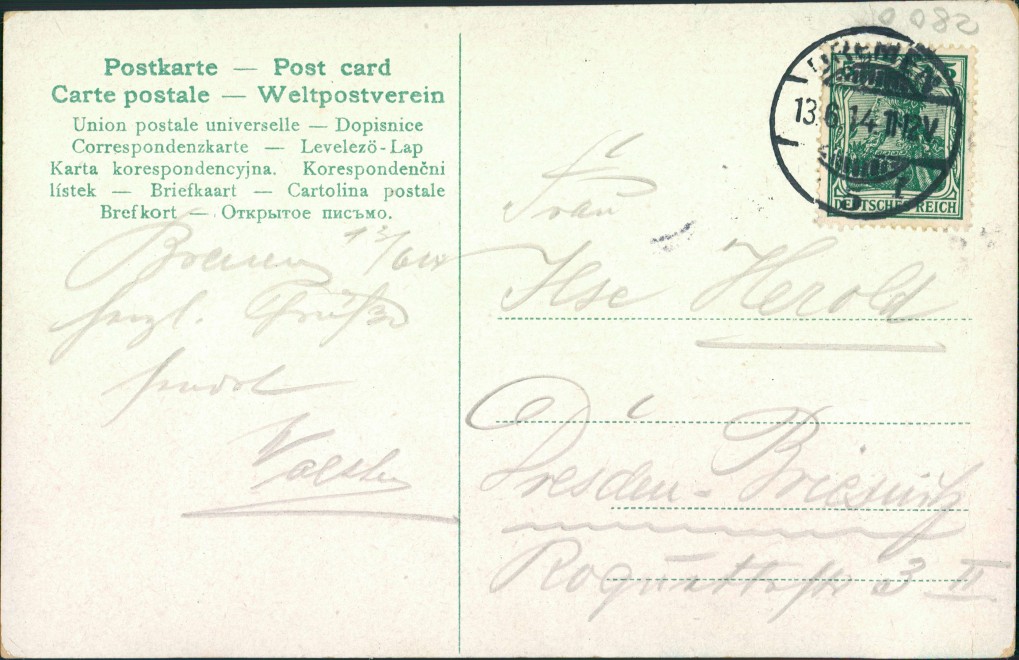 Postkarte — Post card
Carte postale — Weltpostverein
Union postale universelle — Dopisnice
Correspondenzkarte — Levelezö-Lap
Karta korespondencyjna. Korespondenčni
lístek — Briefkaart — Cartolina postale
Brefkort — Открытое письмо.
Bremen 13/6 14
herzl. Grüße
sendet
0080
BREMEN
13.6.14.11-12V.
5
DEUTSCHES REICH
Frau
Ilse Herold
Dresden-Briesnitz
3 II